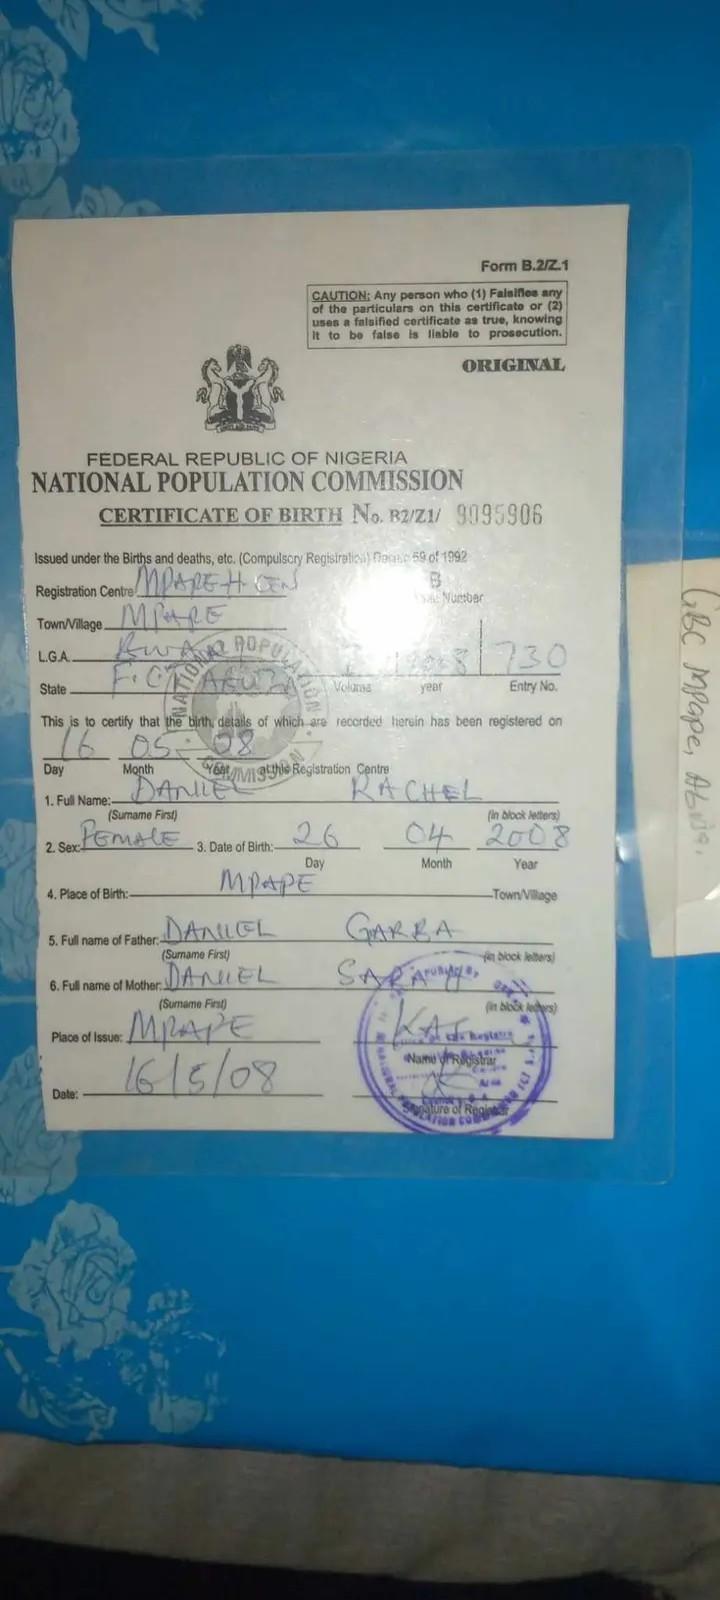 Form B.2/Z.1
CAUTION: Any person who (1) Falsifies any
of the particulars on this certificate or (2)
uses a falsified certificate as true, knowing
it to be false is liable to prosecution.
ORIGINAL
FEDERAL REPUBLIC OF NIGERIA
NATIONAL POPULATION COMMISSION
CERTIFICATE OF BIRTH No. B2/Z1/ 9095906
Issued under the Births and deaths, etc. (Compulsory Registration) 59 of 1992
Registration Centre B
Number
Town/Village MPAPE
L.G.A. 2008 730
State F.C.T ABUJA Volume year Entry No.
NATIONAL POPULATION COMMISSION
This is to certify that the birth, details of which are recorded herein has been registered on
16 05 08
Day Month Year at this Registration Centre
1. Full Name: DANIEL RACHEL
(Surname First) (in block letters)
2. Sex: FEMALE 3. Date of Birth: 26 04 2008
Day Month Year
4. Place of Birth: MPAPE Town/Village
5. Full name of Father: DANIEL GARBA
(Surname First) (in block letters)
6. Full name of Mother: DANIEL SARAH
(Surname First) (in block letters)
Place of Issue: MPAPE
Name of Registrar
Date: 16/5/08
Signature of Registrar
GBC Mpape, Abuja.